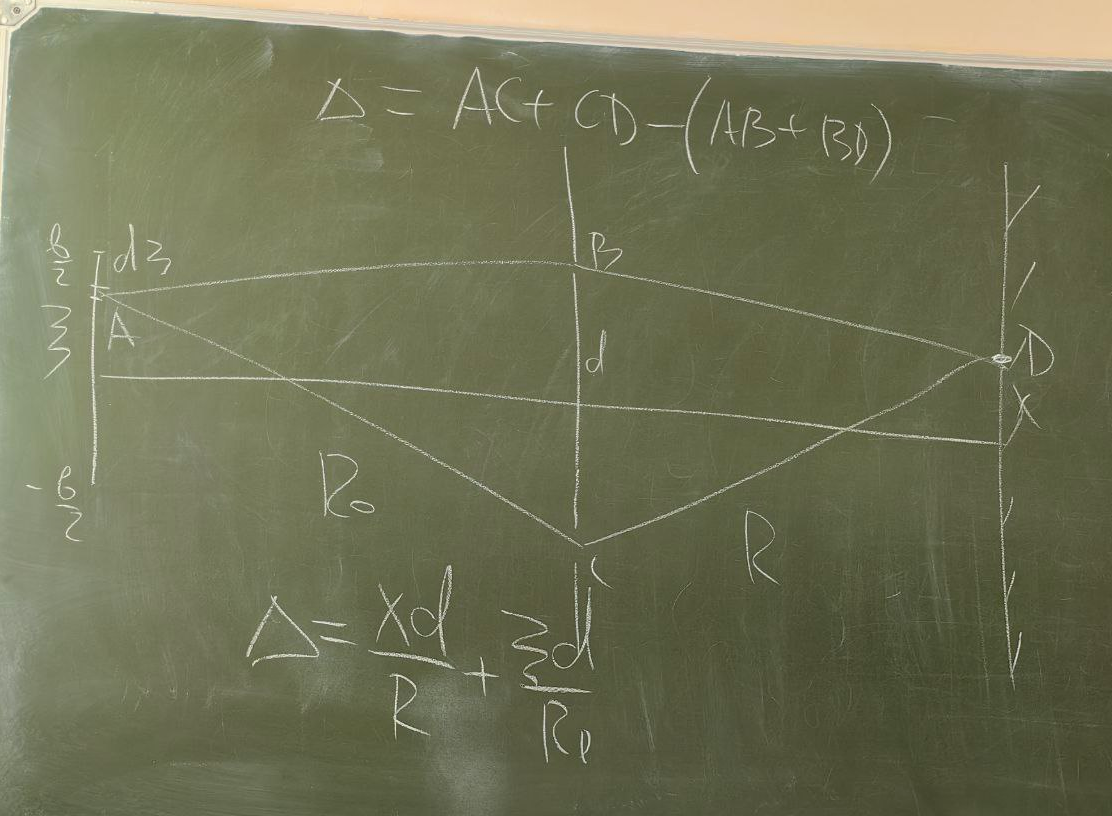 Δ = AC + CD - (AB + BD)
b/2
dξ
B
ξ
A
d
D
x
-b/2
R₀
R
C
Δ = xd/R + ξd/R₀